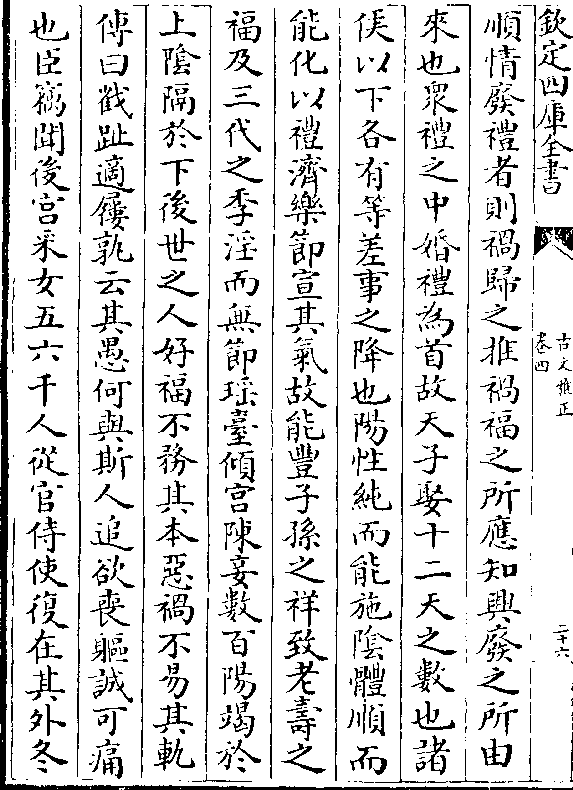 欽定四庫全書
古文雅正
卷四
二十六
順情廢禮者則禍歸之推禍福之所應知興廢之所由
來也衆禮之中婚禮為首故天子娶十二天之數也諸
侯以下各有等差事之降也陽性純而能施隂體順而
能化以禮濟樂節宣其氣故能豐子孫之祥致老壽之
福及三代之季淫而無節瑶臺傾宫陳妾數百陽竭於
上隂隔於下後世之人好福不務其本惡禍不易其軌
傳曰截趾適屨孰云其愚何與斯人追欲喪軀誠可痛
也臣竊聞後宫采女五六千人從官侍使復在其外冬